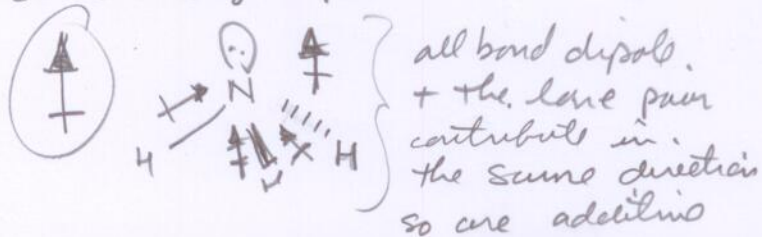 all bond dipole.
N
+ the lone pair
H
H
contribute in.
H
the same direction
so are additive